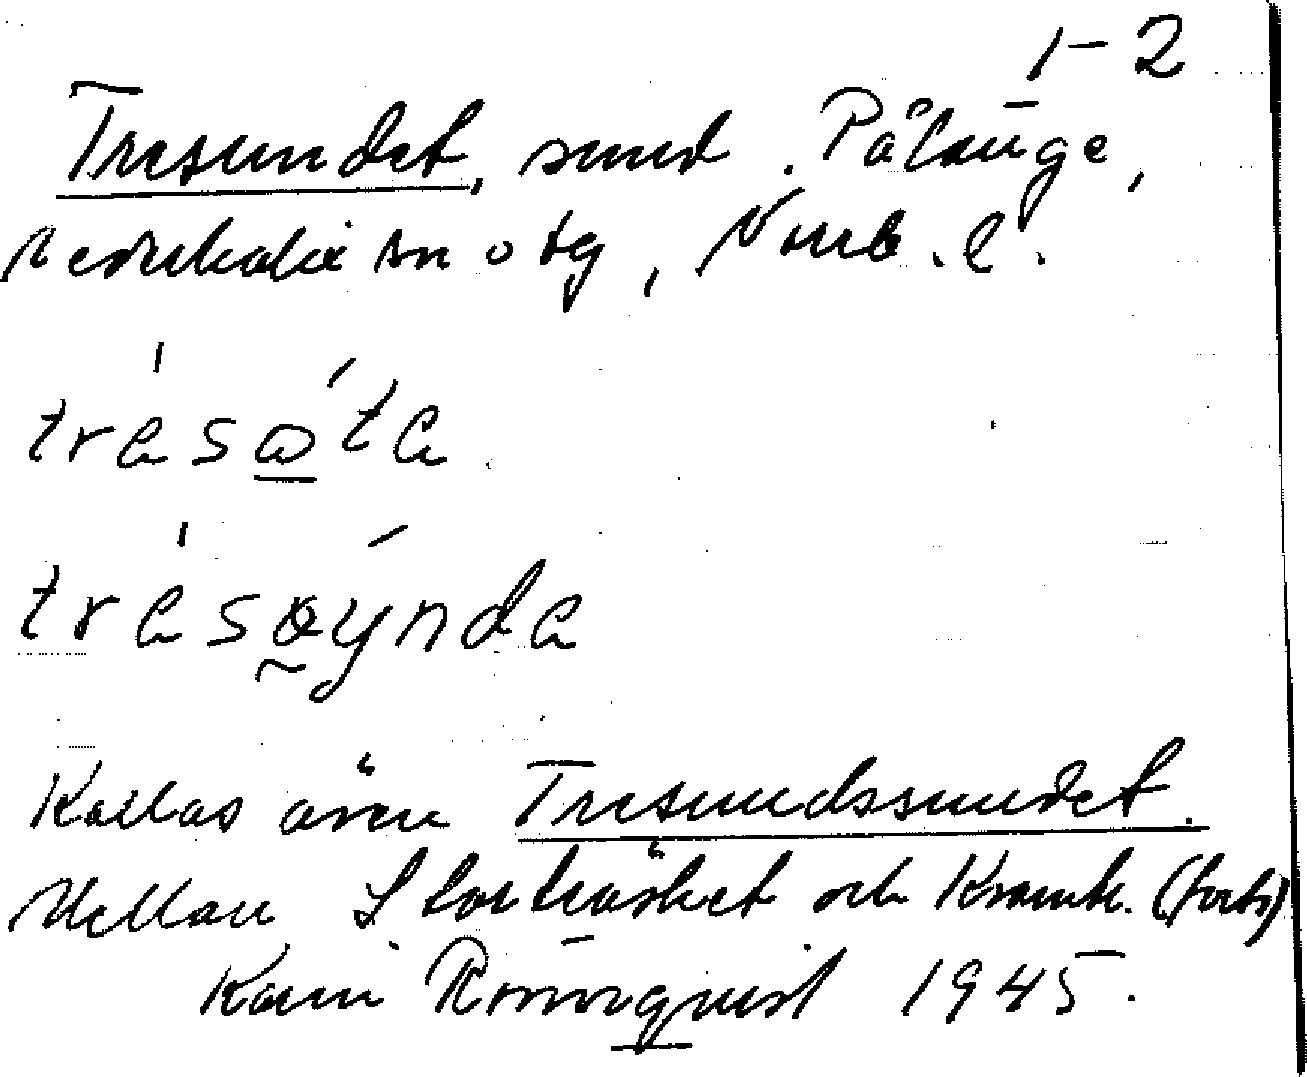 1-2
Tresundet, sund. Pålänge,
Nederkalix sn o tg, Norrb. l.
trésǫ́ta
trésǫýnda
Kallas även Tresundssundet.
Mellan Storträsket och Kramtr. (forts)
Karin Rönnquist 1945.